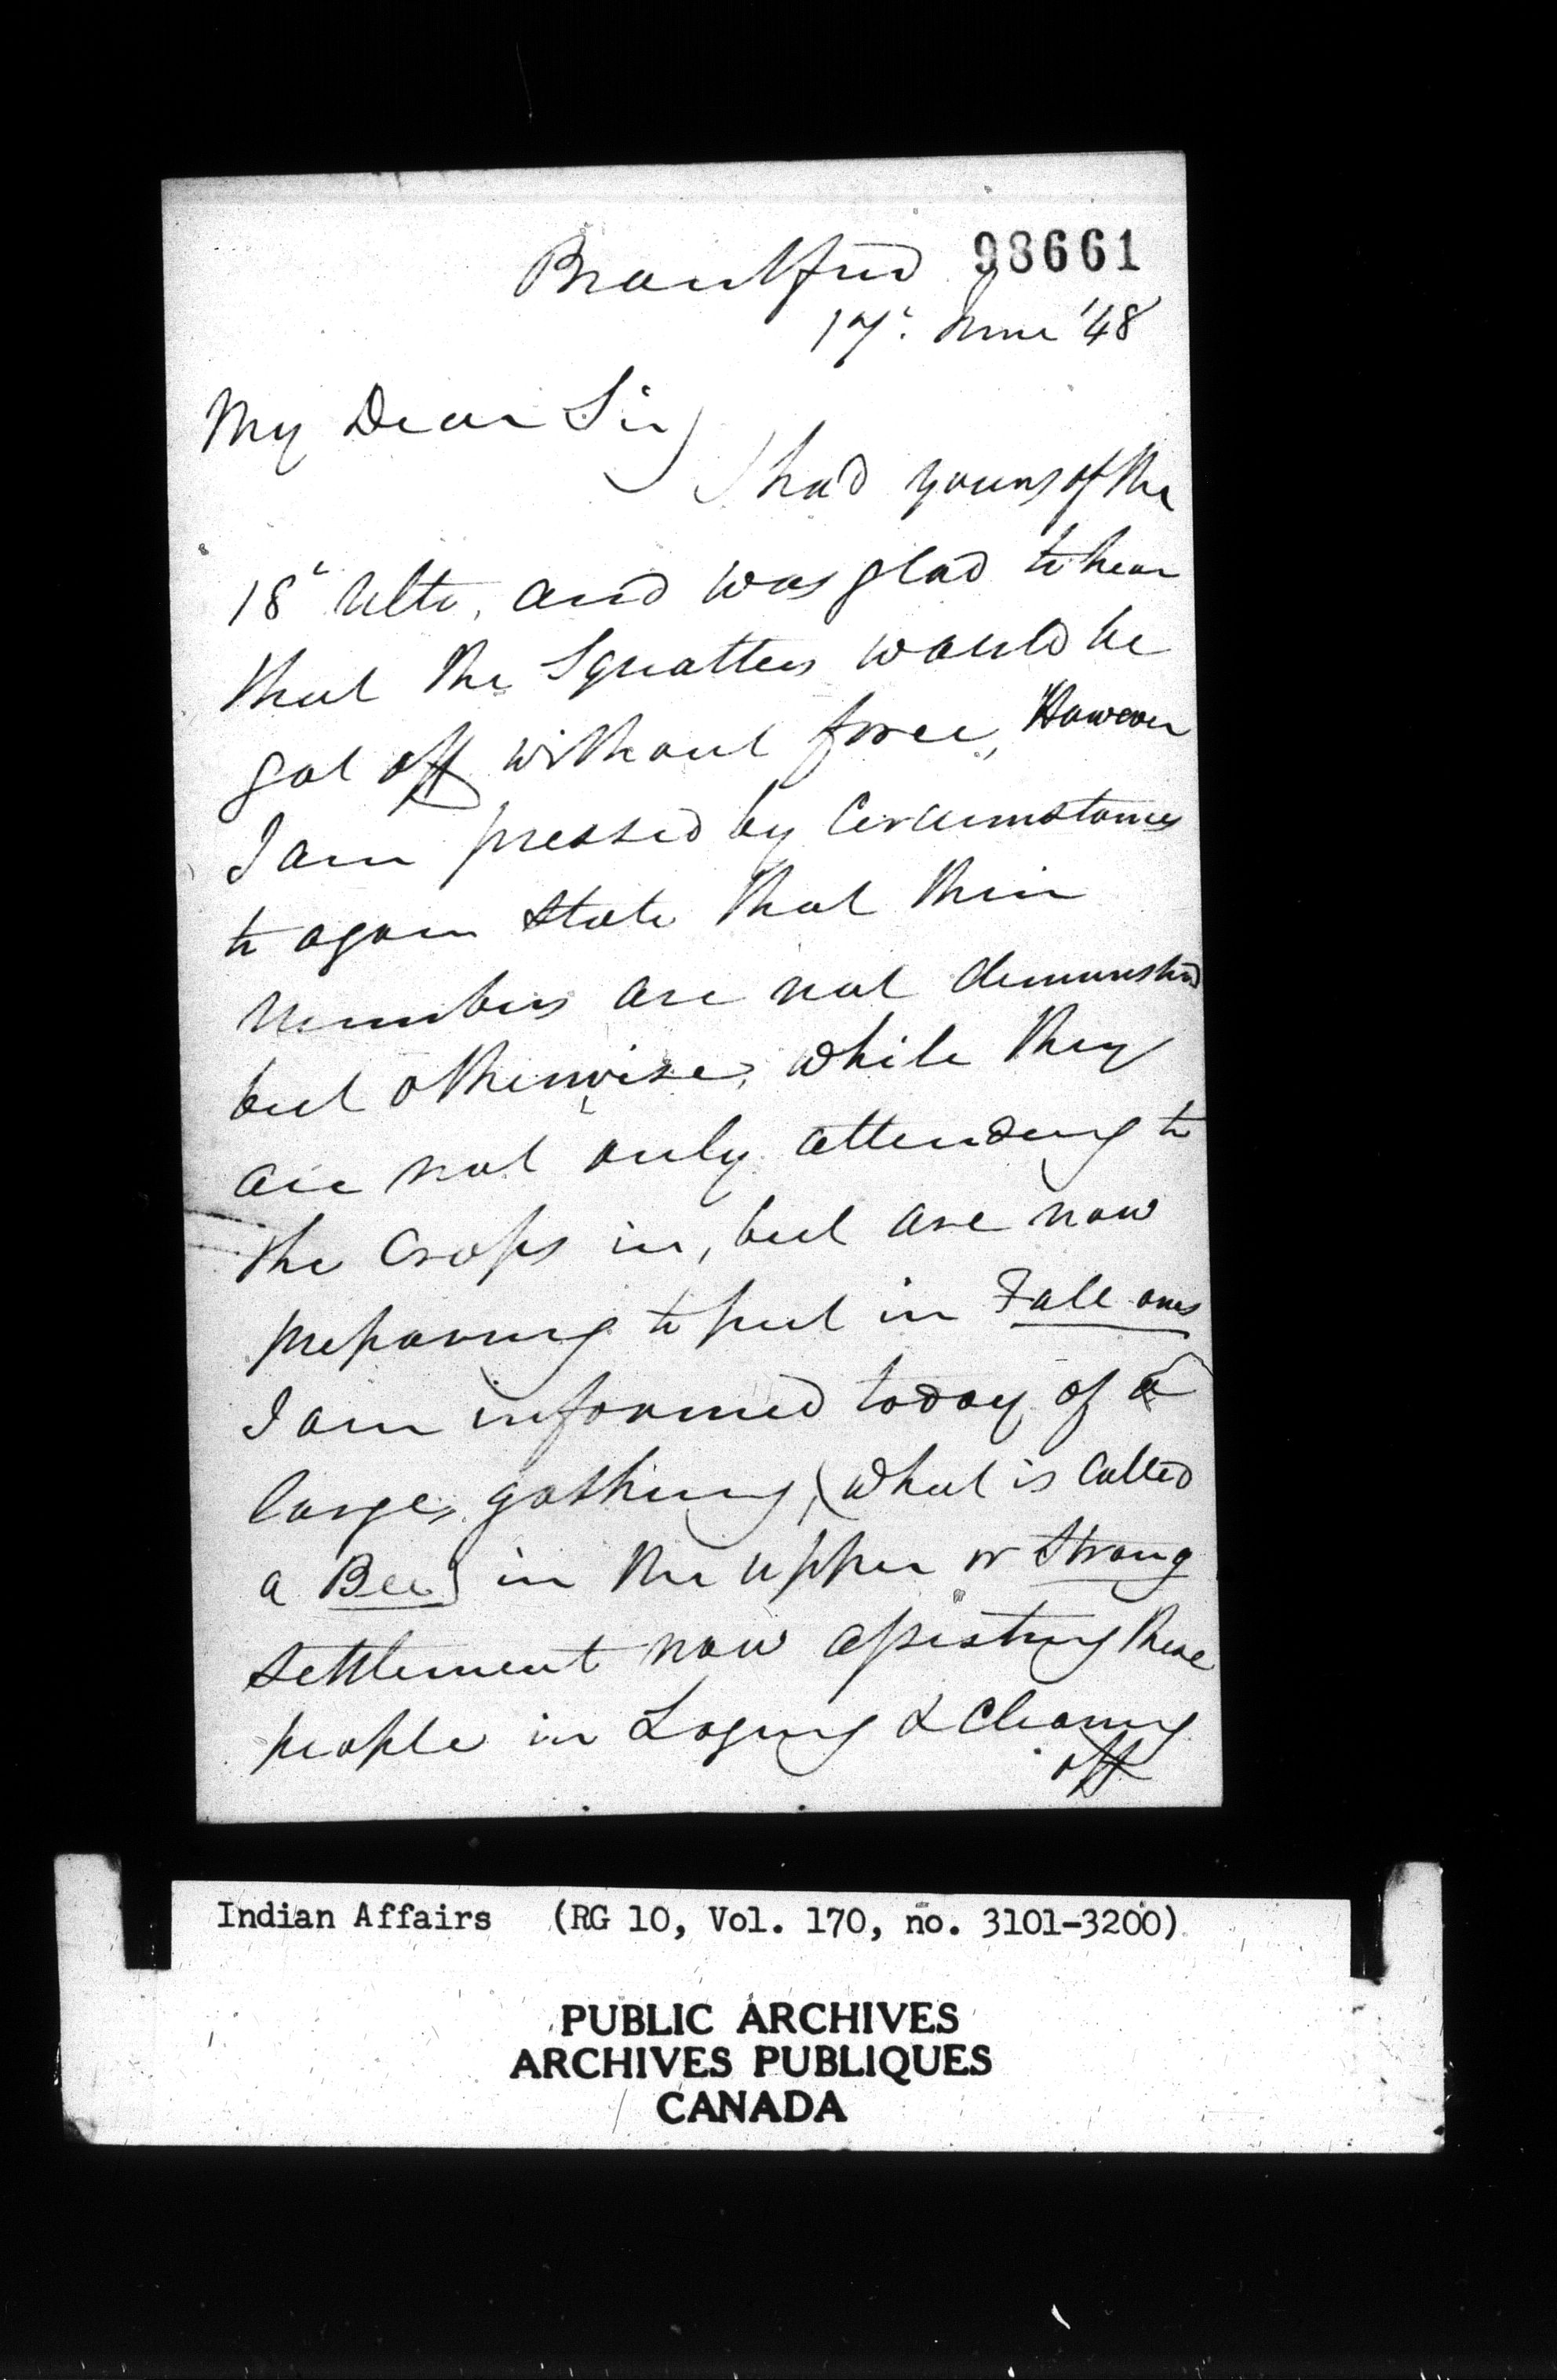 98661
Brantford
17th June '48
My Dear Sir,
I had yours of the
18th Ulto, and was glad to hear
that the Squatters would be
got off without force, However
I am pressed by Circumstances
to again state that their
numbers are not diminished
but otherwise, while they
are not only attending to
the Crops in, but are now
preparing to put in Fall ones
I am informed today of a
large, gathing, (what is called
a Bee) in the upper or Strong
settlement now assisting these
people in Loging & Clearing
off
Indian Affairs (RG 10, Vol. 170, no. 3101-3200)
PUBLIC ARCHIVES
ARCHIVES PUBLIQUES
CANADA